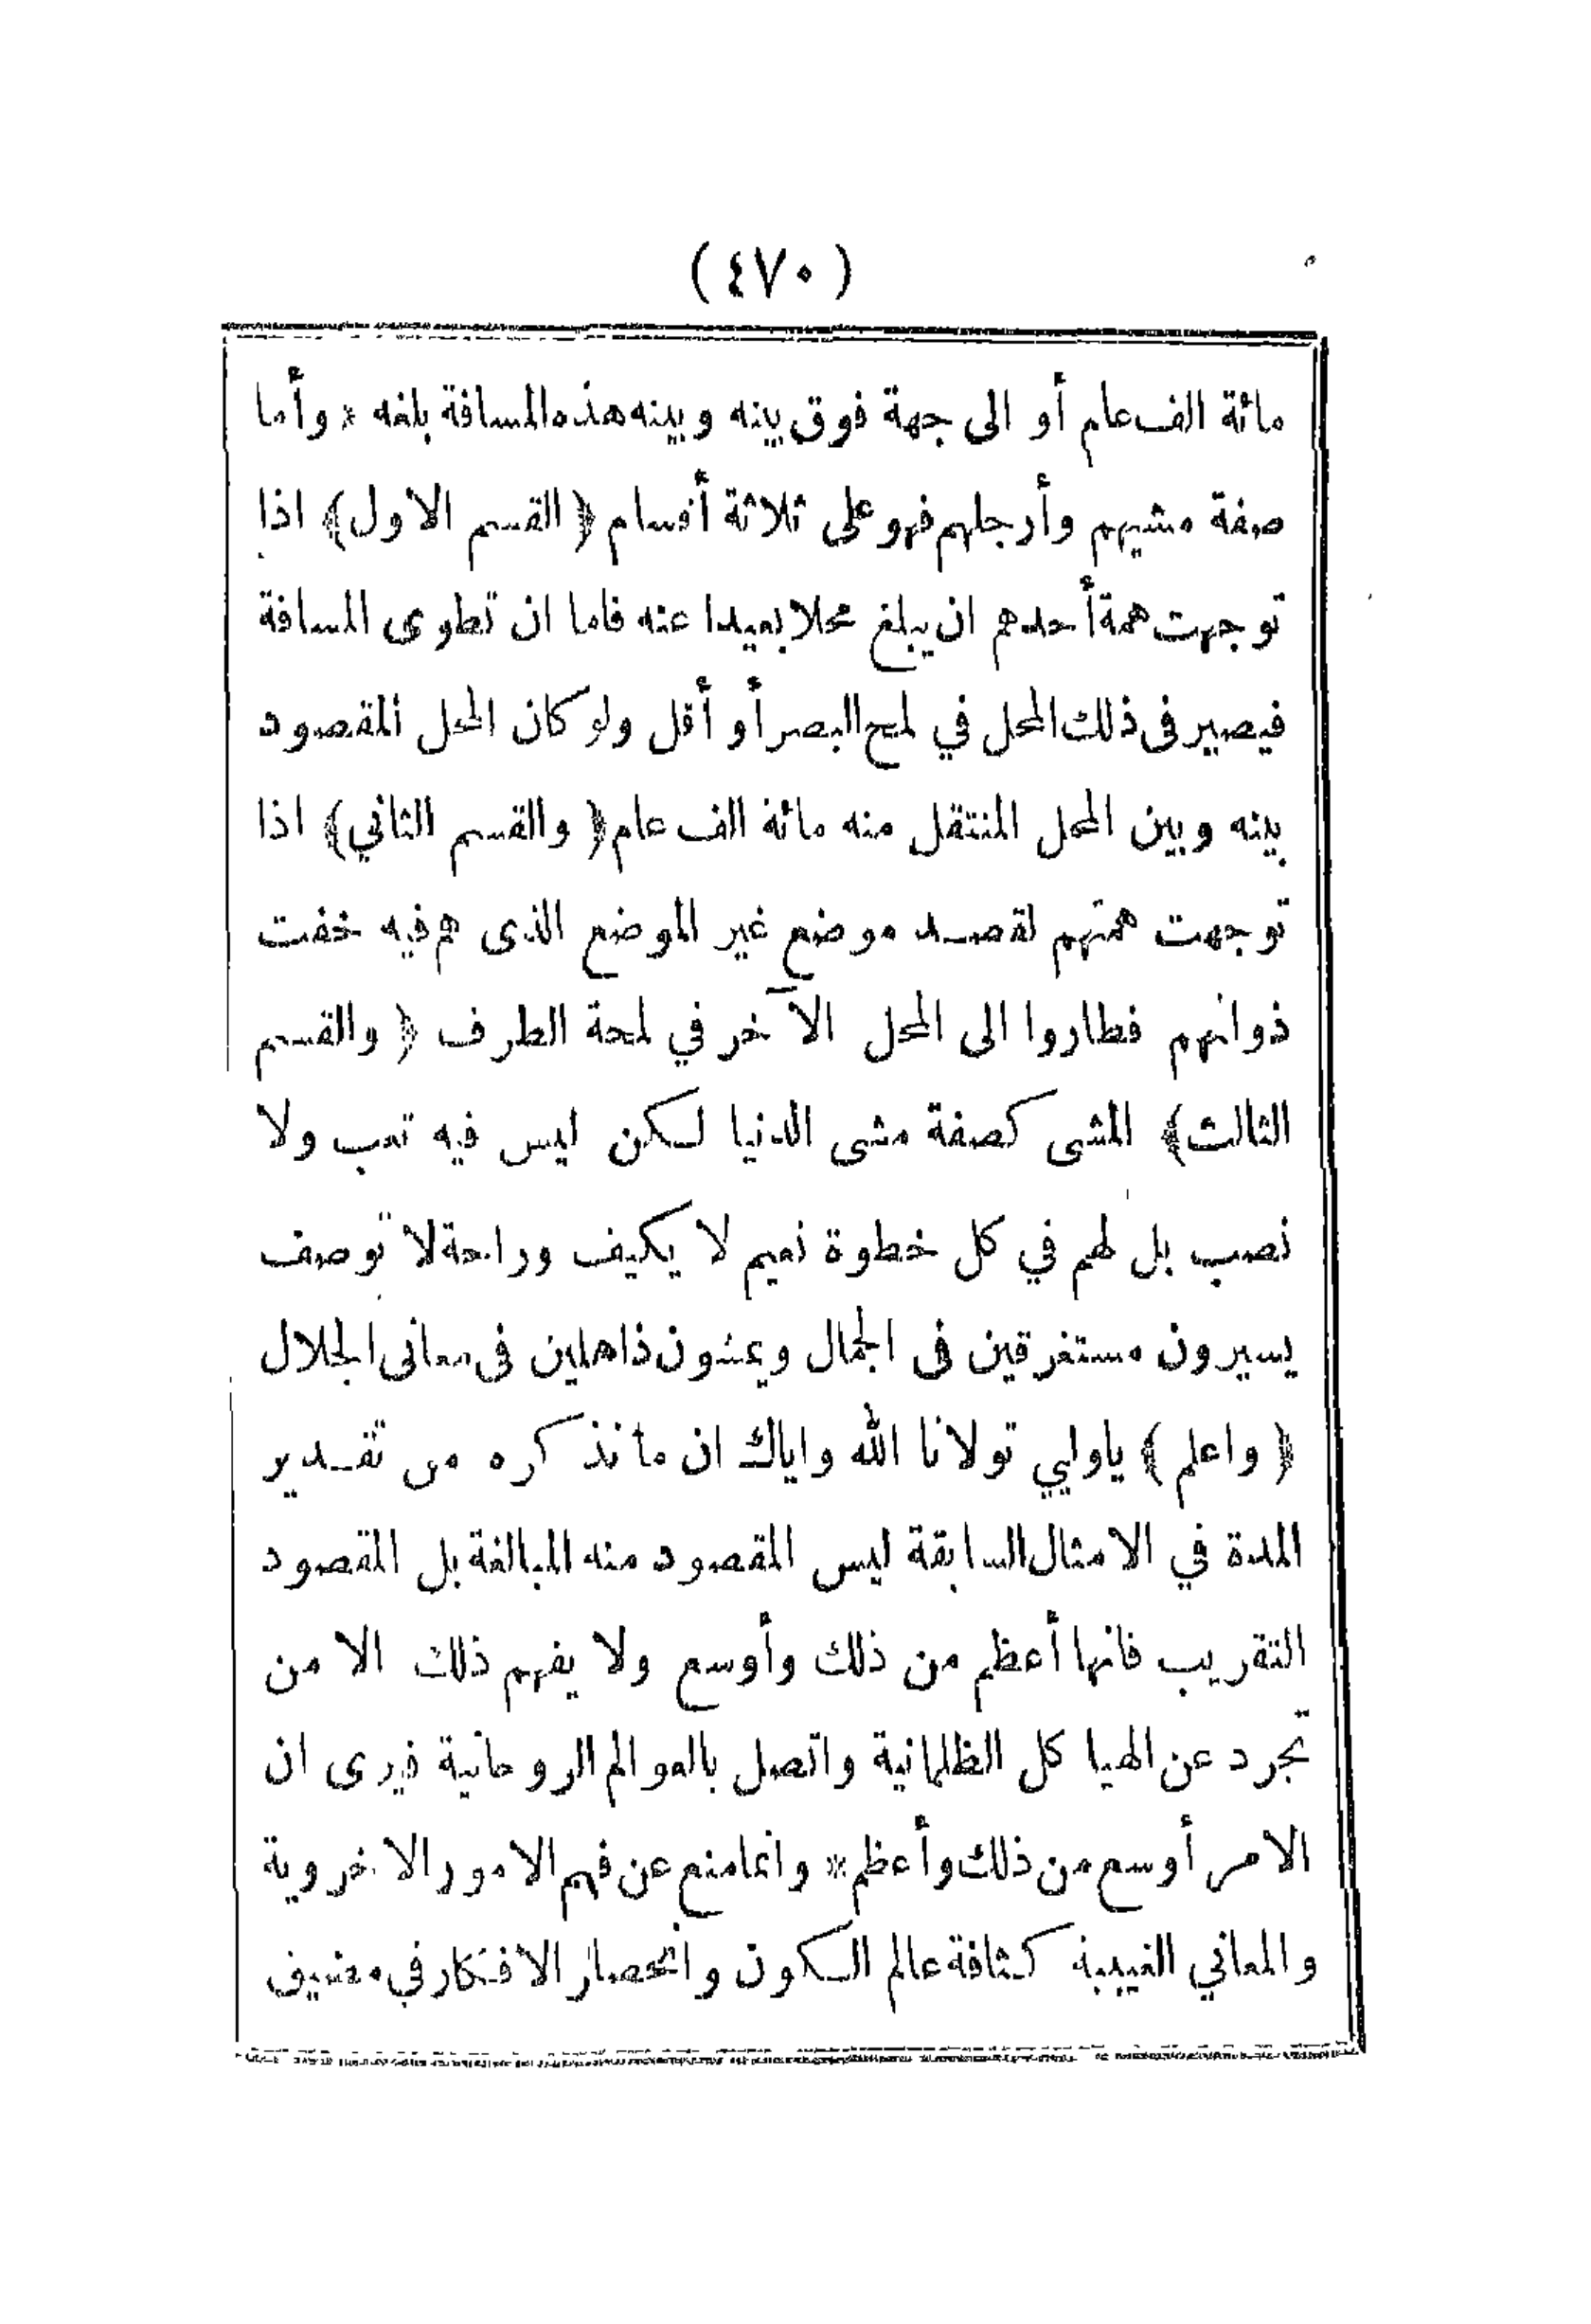 (٤٧٠)
مائة الف عام أو الى جهة فوق بينه وبينه هذه المسافة بلغه * وأما
صفة مشيهم وأرجلهم فهو على ثلاثة أقسام ﴿ القسم الاول﴾ اذا
توجهت همة أحدهم ان يبلغ محلا بعيدا عنه فاما ان تطوى المسافة
فيصير فى ذلك المحل في لمح البصر أو أقل ولو كان المحل المقصود
بينه وبين المحل المنتقل منه مائة الف عام ﴿ والقسم الثاني﴾ اذا
توجهت همتهم لقصد موضع غير الموضع الذى هم فيه خفت
ذواتهم فطاروا الى المحل الآخر في لمحة الطرف ﴿ والقسم
الثالث﴾ المشى كصفة مشى الدنيا لكن ليس فيه تعب ولا
نصب بل لهم في كل خطوة نعيم لا يكيف وراحة لا توصف
يسيرون مستغرقين فى الجمال ويمشون ذاهلين فى معانى الجلال
﴿ واعلم ﴾ ياوليي تولانا الله واياك ان ما نذكره من تقدير
المدة في الامثال السابقة ليس المقصود منه المبالغة بل المقصود
التقريب فانها أعظم من ذلك وأوسع ولا يفهم ذلك الا من
تجرد عن الهياكل الظلمانية واتصل بالعوالم الروحانية فيرى ان
الامر أوسع من ذلك وأعظم * وانما منع عن فهم الامور الاخروية
والمعاني الغيبية كثافة عالم الكون وانحصار الافكار في مضيق